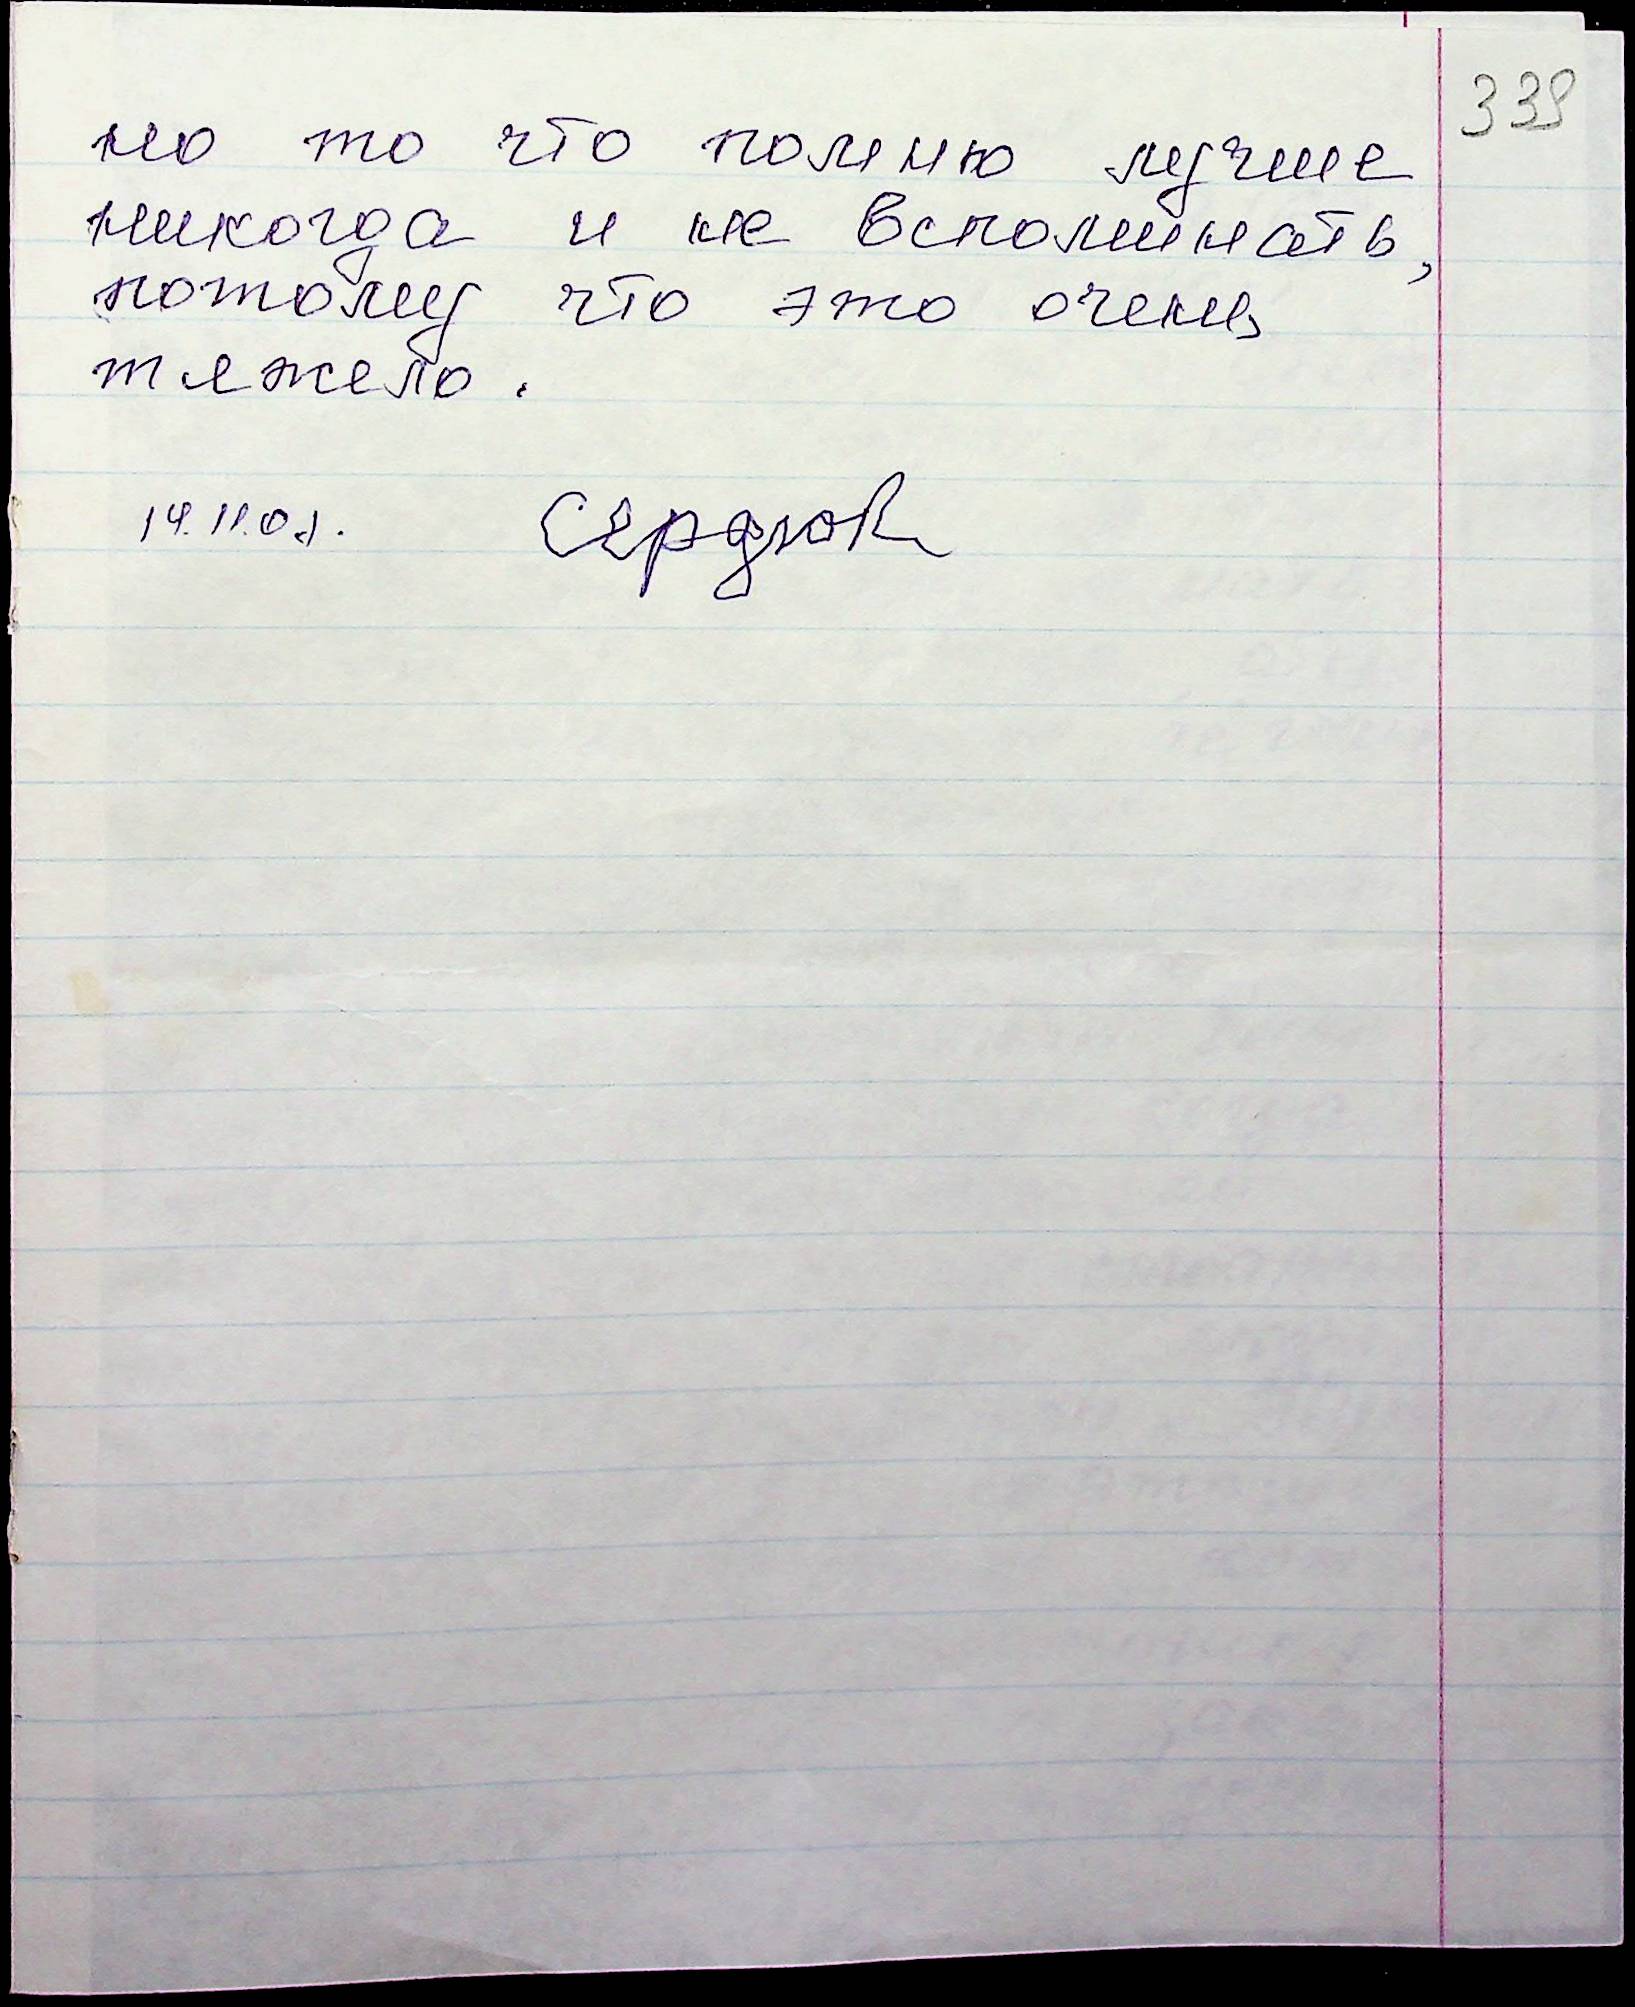 339
но то что помню лучше
никогда и не вспоминать,
потому что это очень
тяжело.
14.11.01. Сердюк